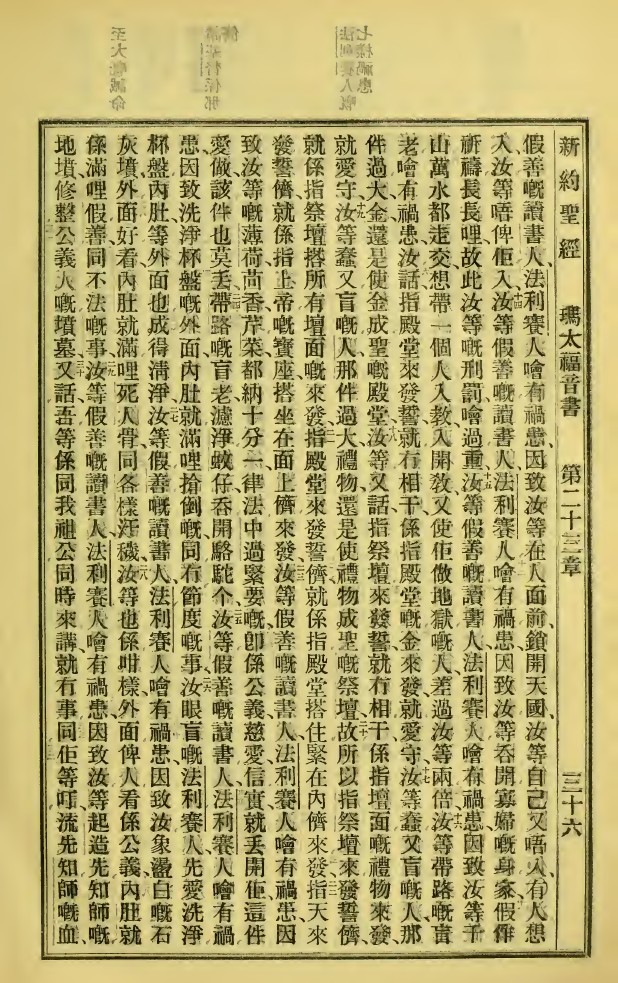 新約聖經 瑪太福音書 第二十三章 三十六
假善嘅讀書人、法利賽人噲有禍患、因致汝等在人面前、鎖開天國、汝等自己又唔入、有人想
入、汝等唔俾佢入、汝等假善嘅讀書人法利賽人噲有禍患、因致汝等吞開寡婦嘅身家、假作
祈禱長長哩、故此汝等嘅刑罰噲過重、汝等假善嘅讀書人、法利賽人噲有禍患、因致汝等千
山萬水都走交、想帶一個人入教、入開教、又使佢做地獄嘅人、差過汝等兩倍、汝等帶路嘅盲
老噲有禍患、汝話指殿堂來發誓、就冇相干、係指殿堂嘅金來發、就愛守、汝等蠢又盲嘅人、那
件過大、金還是使金成聖嘅殿堂、汝等又話指祭壇來發誓就冇相干、係指壇面嘅禮物來發、
就愛守、汝等蠢又盲嘅人、那件過大、禮物還是使禮物成聖嘅祭壇、故所以指祭壇來發誓儕、
就係指祭壇搭所有壇面嘅來發、指殿堂來發誓儕、就係指殿堂搭住緊在內儕來發、指天來
發誓儕、就係指上帝嘅寶座搭坐在面上儕來發、汝等假善嘅讀書人、法利賽人噲有禍患、因
致汝等嘅薄荷茴香芹菜都納十分一、律法中過緊要嘅、卽係公義慈愛信實就丟開佢、這件
愛做、該件也莫丟、帶路嘅盲老、濾淨蚊仔、吞開駱駝个、汝等假善嘅讀書人、法利賽人噲有禍
患、因致洗淨杯盤嘅外面、內肚就滿哩搶倒嘅、同冇節度嘅事、汝眼盲嘅法利賽人、先愛洗淨
杯盤內肚、等外面也成得清淨、汝等假善嘅讀書人、法利賽人噲有禍患、因致汝象盪白嘅石
灰墳、外面好看、內肚就滿哩死人骨、同各樣汙穢、汝等也係咁樣、外面俾人看係公義、內肚就
係滿哩假善、同不法嘅事、汝等假善嘅讀書人、法利賽人噲有禍患、因致汝等起造先知師嘅
地墳、修整公義人嘅墳墓、又話吾等係同我祖公同時來講、就冇事同佢等吓流先知師嘅血、